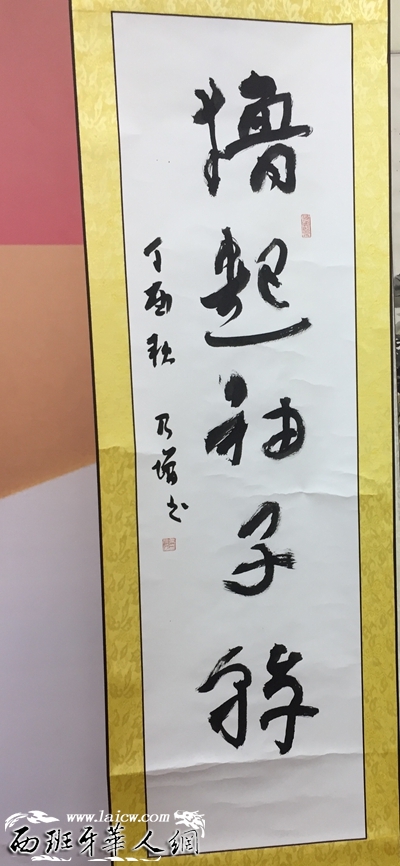 撸起袖子幹
丁酉秋 乃增书
www.laicw.com
西班牙華人網